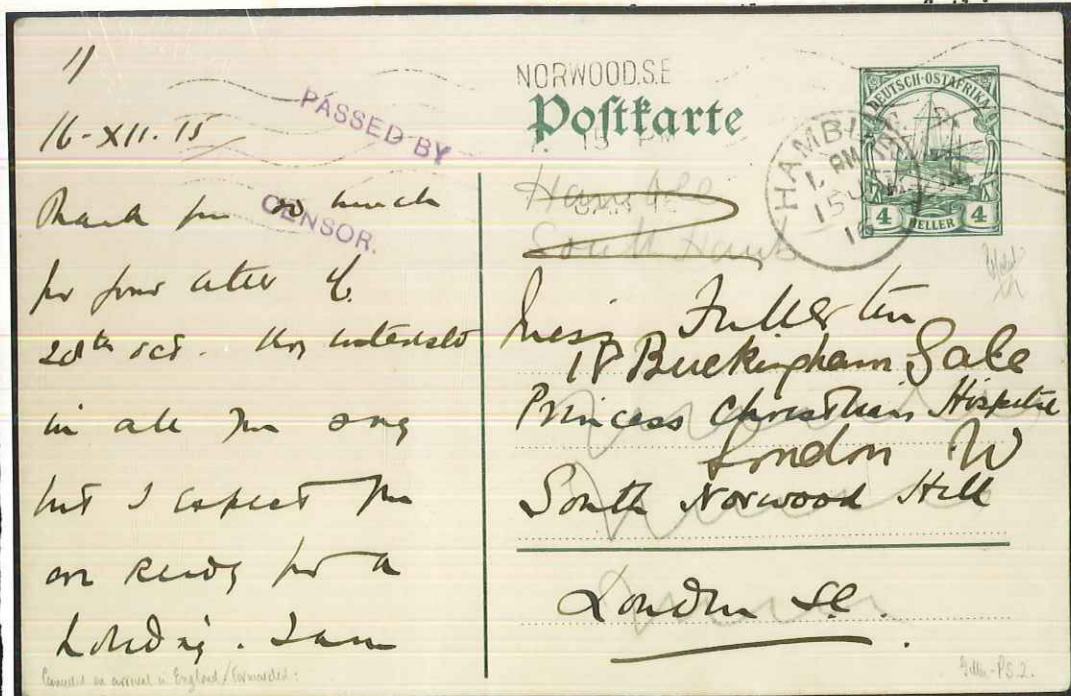 11
16-XII. 15
Thank you so much
for your letter of
20th Oct. interested
in all you say
but I expect you
are ready for a
holiday. I am
PASSED BY
CENSOR.
NORWOOD.S.E
15 PM
JAN
Postkarte
DEUTSCH-OSTAFRIKA
4 HELLER 4
HAMBLE
1. PM
15 JA
16
Hamble
South Hants
Miss Fullerton
18 Buckingham Gate
Princess Christian's Hospital
London W
South Norwood Hill
London SE.
Cancelled on arrival in England / Forwarded:
P.S.2.